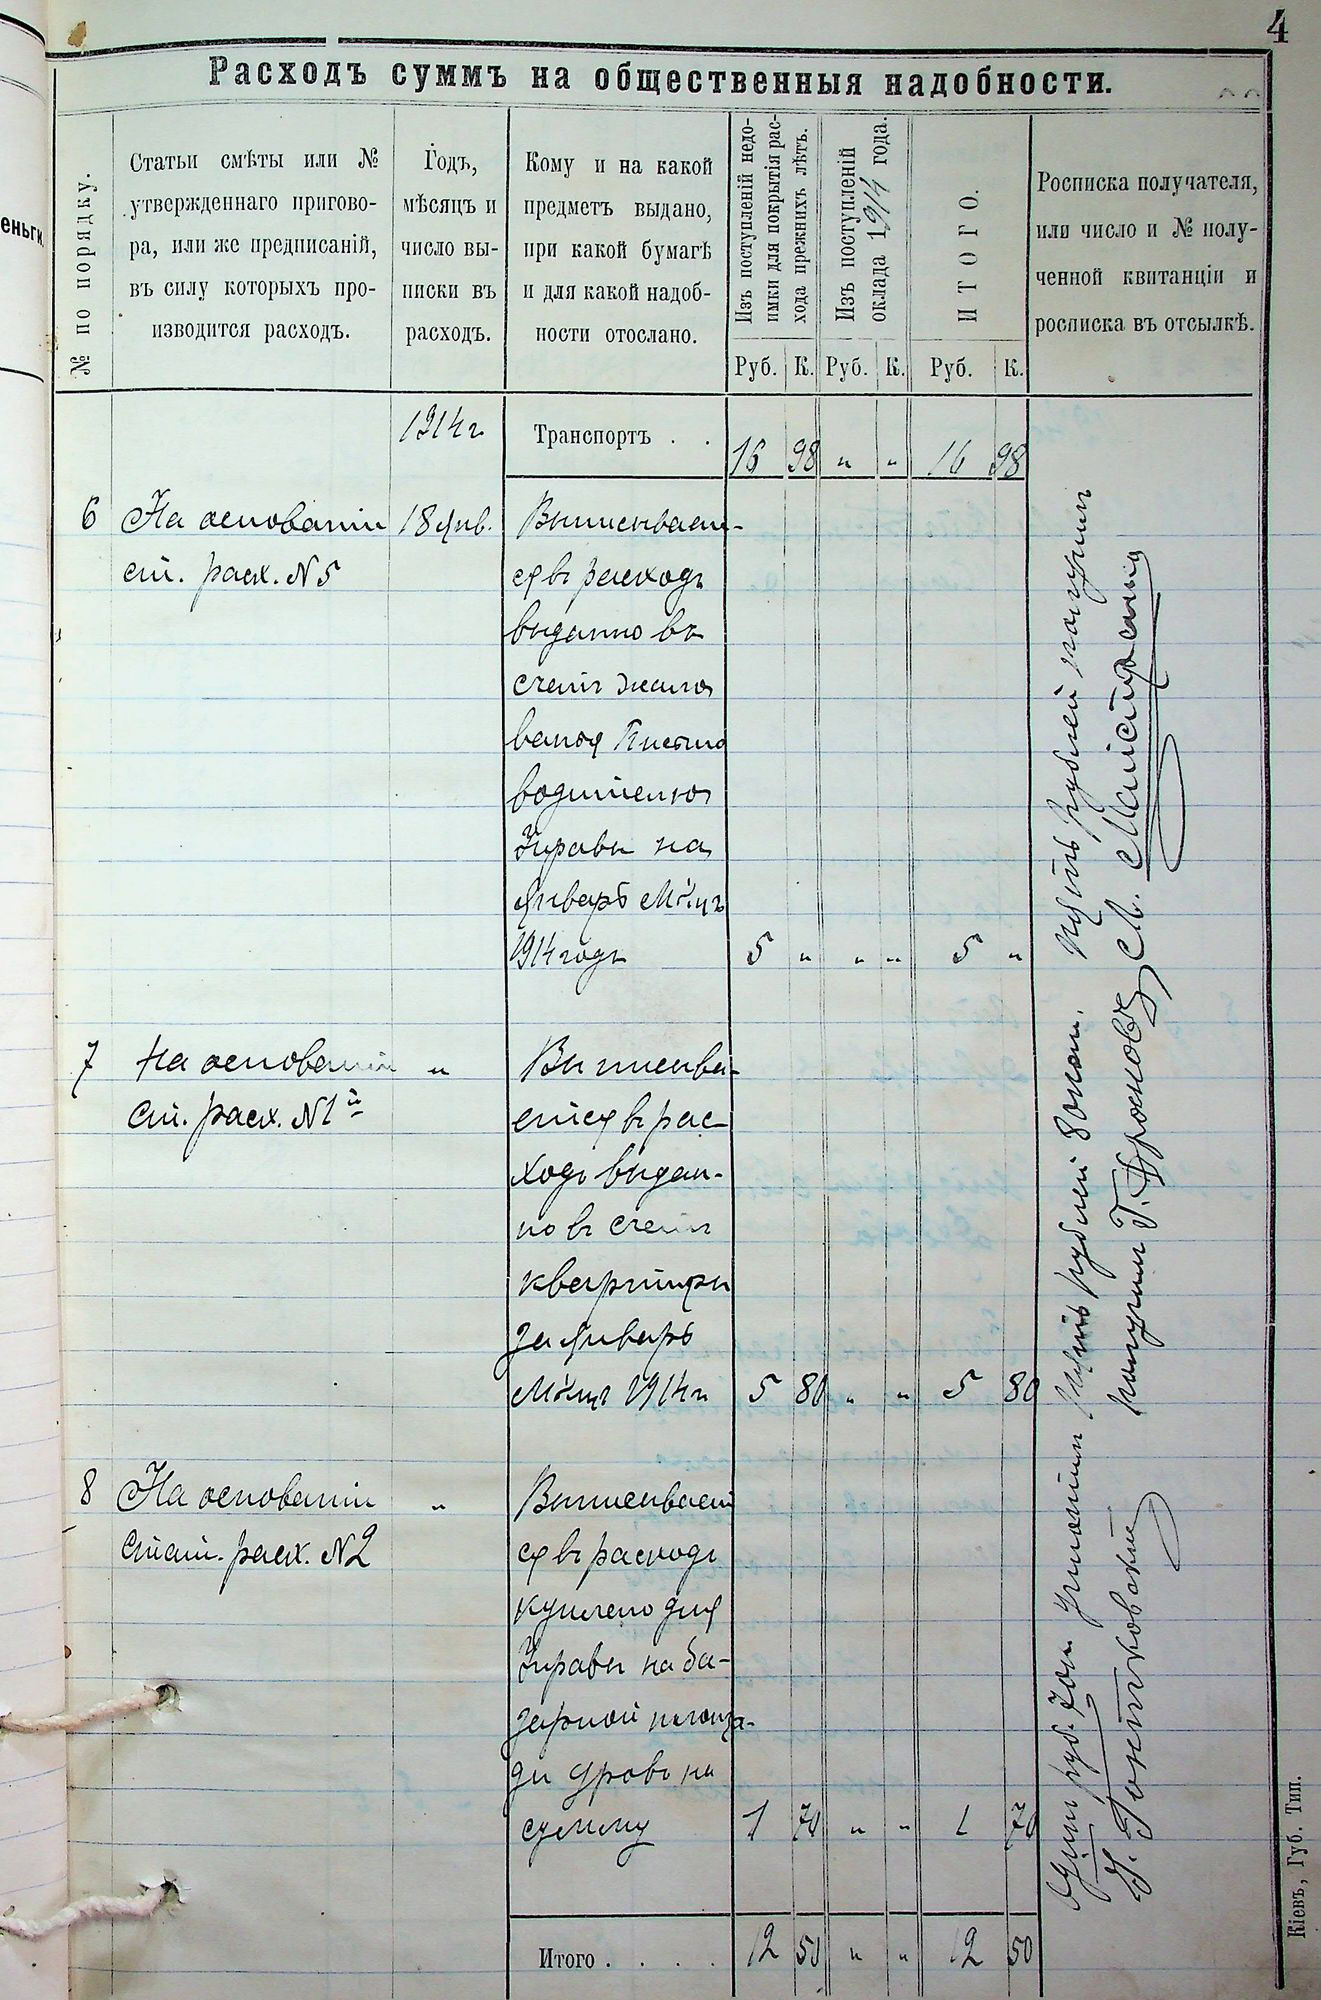 4
Расходъ суммъ на общественныя надобности.
еньги.
№ по порядку.
Статьи смѣты или №
утвержденнаго пригово-
ра, или же предписаній,
въ силу которыхъ про-
изводится расходъ.
Годъ,
мѣсяцъ и
число вы-
писки въ
расходъ.
Кому и на какой
предметъ выдано,
при какой бумагѣ
и для какой надоб-
ности отослано.
Изъ поступленій недо-
имки для покрытія рас-
хода прежнихъ лѣтъ.
Изъ поступленій
оклада 1914 года.
ИТОГО.
Росписка получателя,
или число и № полу-
ченной квитанціи и
росписка въ отсылкѣ.
Руб. К. Руб. К. Руб. К.
1914 г Транспортъ . . 16 98 " " 16 98
6 На основаніи 18 Янв. Выписывает-
ст. расх. N 5 ся въ расходъ
выданно въ
счетъ жало
ванья Письмо
водителю
Управы на
Январь М-цъ
1914 годъ 5 " " " 5 "
Пять рублей получил
7 На основаніи " Выписыва-
ст. расх. N 1й ется въ рас-
ходъ выдан-
но въ счетъ
квартиры
за Январь
М-цъ 1914 г 5 80 " " 5 80
Пять рублей 80 коп.
получил Г.
8 На основаніи " Выписывает
стат. расх. N 2 ся въ расходъ
куплено для
Управы на ба-
зарной площа-
ди дровъ на
сумму 1 70 " " 1 70
Один руб. 70 к. уплотил
Итого . . . . 12 50 " " 12 50
Кіевъ, Губ. Тип.